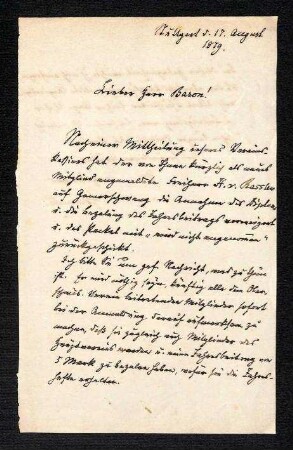 Stuttgart d. 17. August
1879.
Lieber Herr Baron!
Nach einer Mittheilung unseres Vereins-
kassiers hat der von Ihnen kürzlich als neues
Mitglied angemeldete Freiherr A. v. Rassler
auf die Annahme des Diploms
u. die Bezahlung des Jahresbeitrags verweigert
u. das Packet mit „wird nicht angenommen"
zurückgeschickt.
Ich bitte Sie um gef. Nachricht, was zu thun
ist. Es wird nöthig sein, künftig alle dem
Verein beitretenden Mitglieder sofort
bei der Anmeldung darauf aufmerksam zu
machen, daß sie zugleich auch Mitglieder des
Zweigvereins werden u. einen Jahresbeitrag von
5 Mark zu bezahlen haben, wofür sie die Jahres-
hefte erhalten.